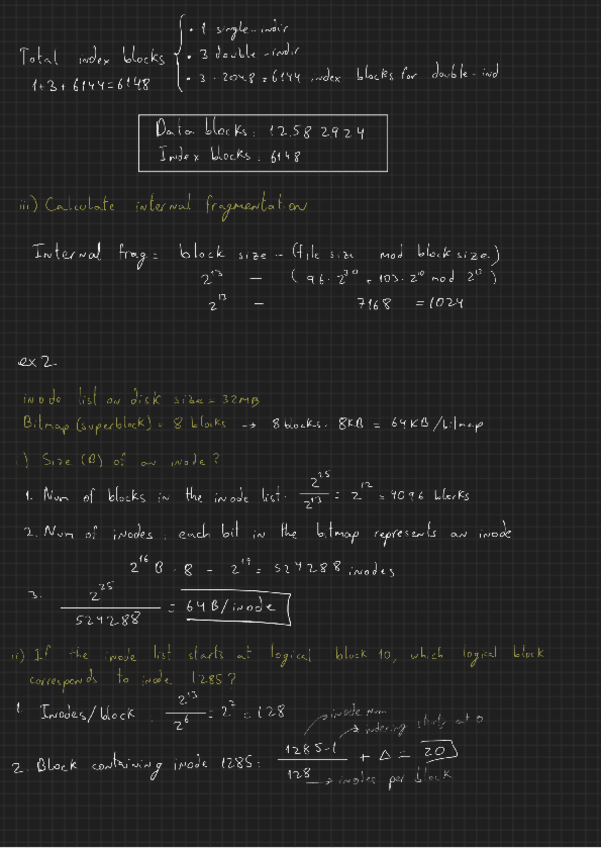 Total index blocks
1+3+6144=6148
• 1 single-indir
• 3 double-indir
• 3 · 2048 = 6144 index blocks for double-ind
Data blocks: 12.582924
Index blocks: 6148
iii) Calculate internal fragmentation
Internal frag = block size - (file size mod block size)
2^13 - (96 · 2^30 + 103 · 2^10 mod 2^13)
2^13 - 7168 = 1024
ex 2
inode list on disk size = 32MB
Bitmap (superblock) = 8 blocks → 8 blocks · 8KB = 64KB/bitmap
i) Size (B) of an inode?
1. Num of blocks in the inode list: 2^25 / 2^13 = 2^12 = 4096 blocks
2. Num of inodes: each bit in the bitmap represents an inode
2^16 B · 8 = 2^19 = 524288 inodes
3. 2^25 / 524288 = 64B/inode
ii) If the inode list starts at logical block 10, which logical block
corresponds to inode 1285?
1. Inodes/block: 2^13 / 2^6 = 2^7 = 128
→ inode num
→ indexing starts at 0
2. Block containing inode 1285: 1285-1 / 128 + Δ = 20
→ inodes per block